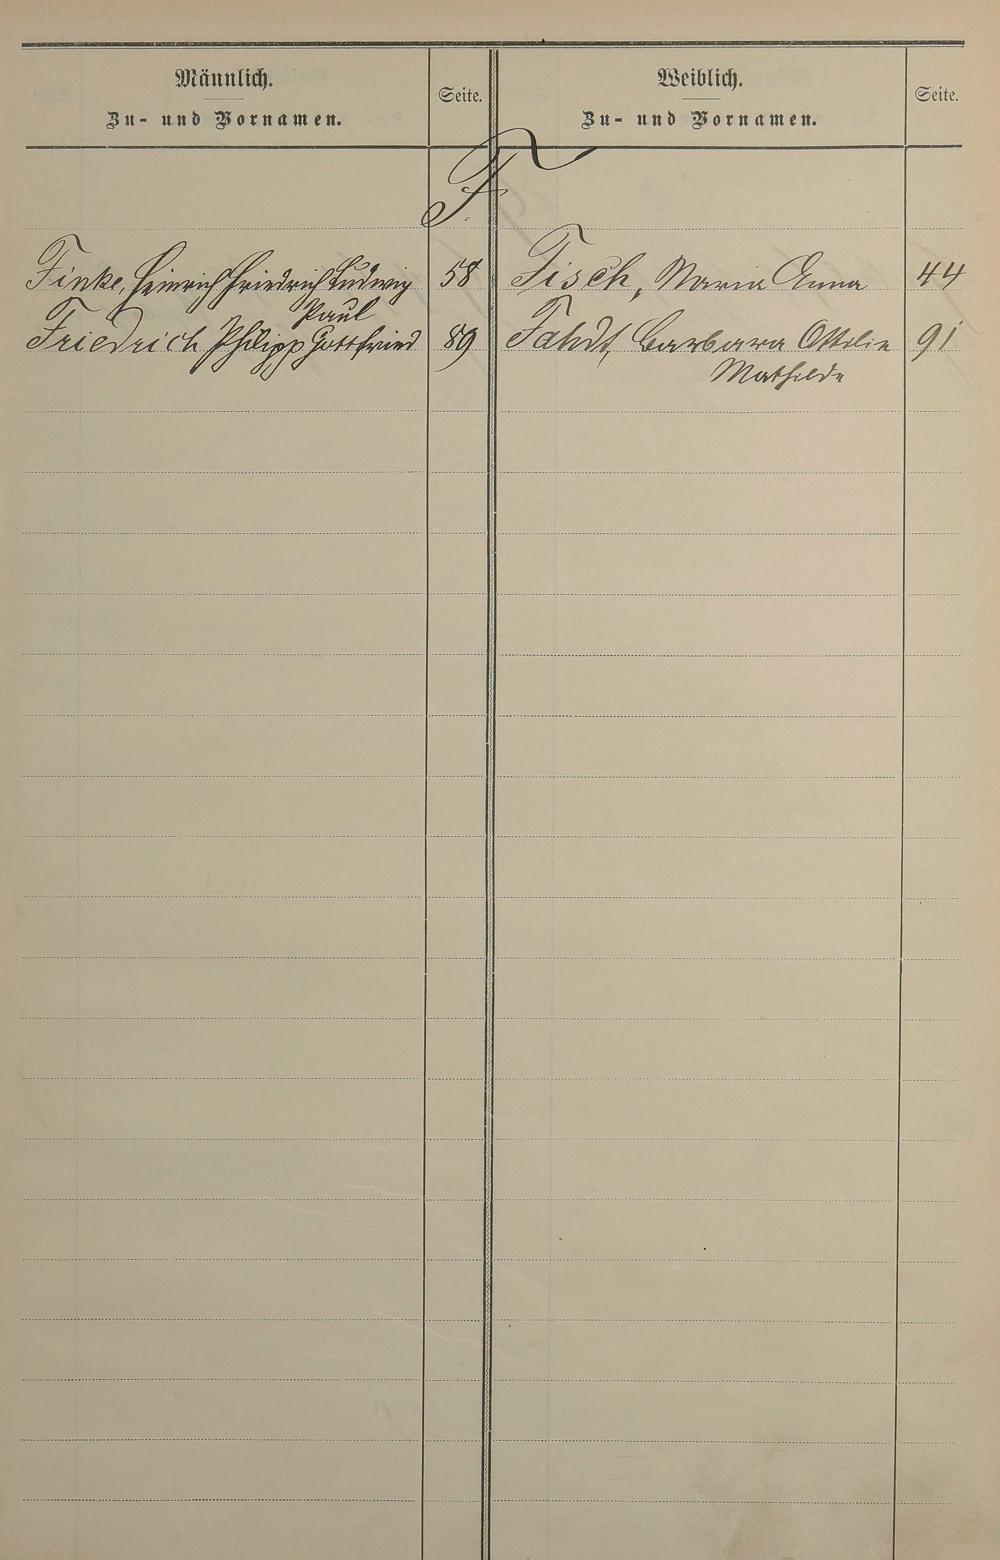 Männlich.
Zu- und Vornamen.
Seite.
Weiblich.
Zu- und Vornamen.
Seite.
F.
Finke, Heinrich Friedrich Ludwig 58
Paul
Friedrich Philipp Gottfried 89
Fisch, Maria Anna 44
Fahdt, Barbara Ottilie 91
Mathilde